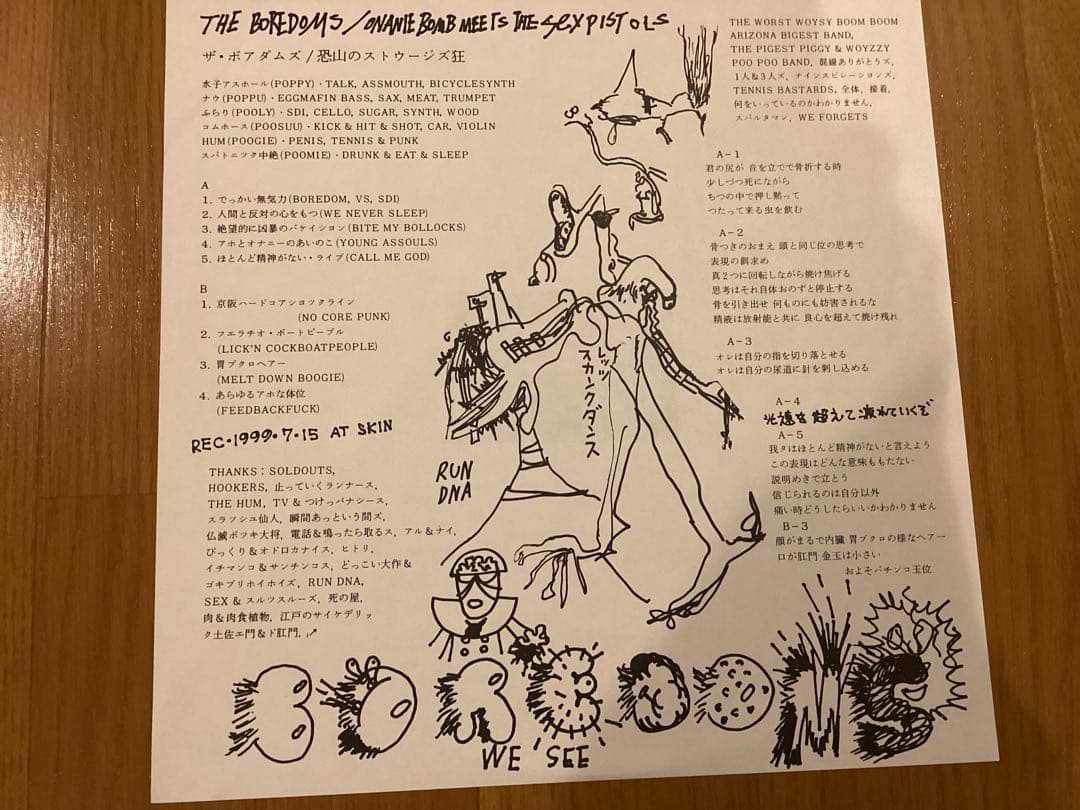 THE BOREDOMS/ONANIE BOMB MEETS THE SEX PISTOLS
ザ・ボアダムズ/恐山のストゥージズ狂
水子アスホール(POPPY)・TALK, ASSMOUTH, BICYCLESYNTH
ナウ(POPPU)・EGGMAFIN BASS, SAX, MEAT, TRUMPET
ふらり(POOLY)・SDI, CELLO, SUGAR, SYNTH, WOOD
コムホース(POOSUU)・KICK & HIT & SHOT, CAR, VIOLIN
HUM(POOGIE)・PENIS, TENNIS & PUNK
スパトニック中絶(POOMIE)・DRUNK & EAT & SLEEP
A
1. でっかい無気力(BOREDOM, VS, SDI)
2. 人間と反対の心をもつ(WE NEVER SLEEP)
3. 絶望的に凶暴のバケイション(BITE MY BOLLOCKS)
4. アホとオナニーのあいのこ(YOUNG ASSOULS)
5. ほとんど精神がない・ライブ(CALL ME GOD)
B
1. 京阪ハードコアショックライン
(NO CORE PUNK)
2. フェラチオ・ボートピープル
(LICK'N COCKBOATPEOPLE)
3. 胃ブクロヘアー
(MELT DOWN BOOGIE)
4. あらゆるアホな体位
(FEEDBACKFUCK)
REC・1999・7・15 AT SKIN
THANKS: SOLDOUTS,
HOOKERS, 止っていくランナース,
THE HUM, TV & つけっパナシース,
スラッシュ仙人, 瞬間あっという間ズ,
仏滅ボツキ大将, 電話&鳴ったら取るス, アル&ナイ,
びっくり&オドロカナイス, ヒトリ,
イチマンコ&サンチンコス, どっこい大作&
ゴキブリホイホイズ, RUN DNA,
SEX & スルツスルーズ, 死の屋,
肉&肉食植物, 江戸のサイケデリッ
ク土佐エ門&ド肛門,
THE WORST WOYSY BOOM BOOM
ARIZONA BIGEST BAND,
THE PIGEST PIGGY & WOYZZY
POO POO BAND, 混線ありがとうズ,
1人&3人ズ, ナインスピレーションズ,
TENNIS BASTARDS, 全体, 接着,
何をいっているのかわかりません,
スパルタマン, WE FORGETS
A-1
君の尻が 音を立てて骨折する時
少しづつ死にながら
ちつの中で押し黙って
つたって来る虫を飲む
A-2
骨つきのおまえ 頭と同じ位の思考で
表現の餌求め
真2つに回転しながら焼け焦げる
思考はそれ自体おのずと停止する
骨を引き出せ 何ものにも妨害されるな
精液は放射能と共に 良心を超えて焼け残れ
A-3
オレは自分の指を切り落とせる
オレは自分の尿道に針を刺し込める
A-4
光速を超えて流れていくぞ
A-5
我々はほとんど精神がないと言えよう
この表現はどんな意味ももたない
説明めきで立とう
信じられるのは自分以外
痛い時どうしたらいいかわかりません
B-3
顔がまるで内臓 胃ブクロの様なヘアー
口が肛門 金玉は小さい
およそパチンコ玉位
レッツ
スカンクダンス
RUN
DNA
BOREDOMS
WE SEE